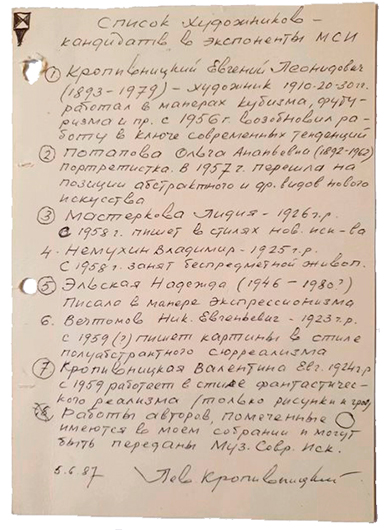 Список художников –
кандидатов в экспоненты МСИ
1 Кропивницкий Евгений Леонидович
(1893-1979) – художник 1910-20-30 гг.
работал в манерах кубизма, футу-
ризма и пр. с 1956 г. возобновил ра-
боту в ключе современных тенденций
2 Потапова Ольга Ананьевна (1892-1962)
портретистка. В 1957 г. перешла на
позиции абстрактного и др. видов нового
искусства
3 Мастеркова Лидия – 1926 г.р.
С 1958 г. пишет в стилях нов. иск-ва
4. Немухин Владимир – 1925 г.р.
С 1958 г. занят беспредметной живоп.
5 Эльская Надежда (1946 – 1980?)
Писала в манере экспрессионизма
6. Вечтомов Ник. Евгеньевич – 1923 г.р.
с 1959 (?) пишет картины в стиле
полуабстрактного сюрреализма
7 Кропивницкая Валентина Евг. 1924 г.р
с 1959 работает в стиле фантастичес-
кого реализма (только рисунки и
Работы авторов, помеченные
имеются в моем собрании и могут
быть переданы Муз. Совр. Иск.
6.87 Лев Кропивницкий